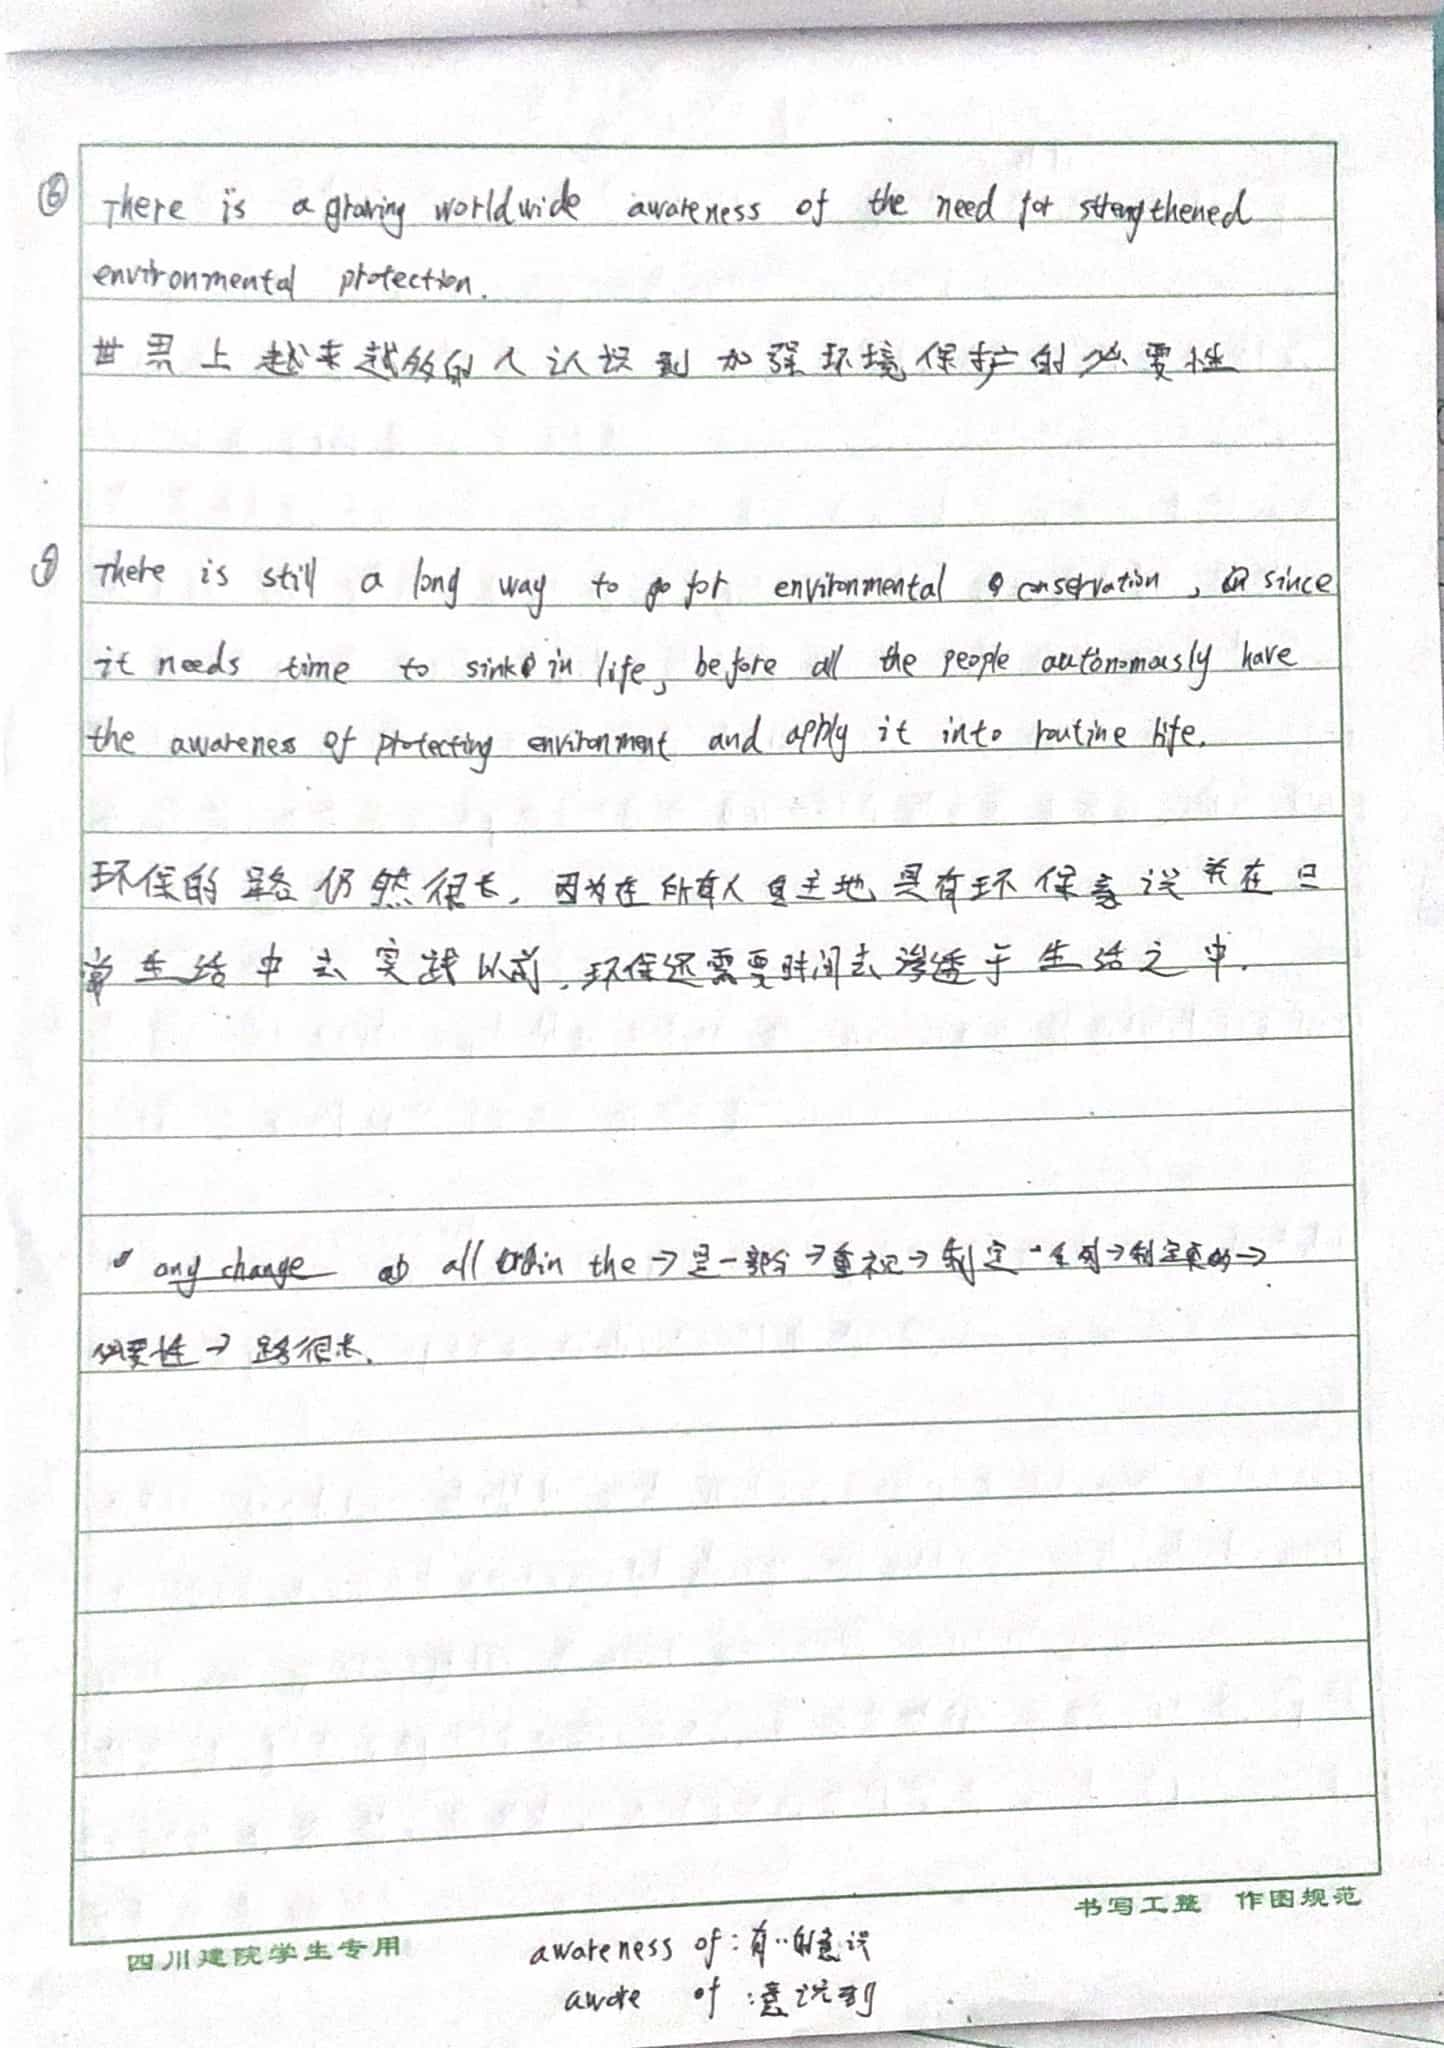 ⑥ There is a growing worldwide awareness of the need for strengthened
environmental protection.
世界上越来越多的人认识到加强环境保护的必要性
There is still a long way to go for environmental conservation, since
it needs time to sink in life, before all the people autonomously have
the awareness of protecting environment and apply it into routine life.
环保的路仍然很长, 因为在所有人自主地具有环保意识并在日
常生活中去实践以前, 环保还需要时间去渗透于生活之中.
any change all in the → 是一部分 → 重视 → 制定一系列 → 制定 →
必要性 → 路很长.
书写工整 作图规范
四川建院学生专用
awareness of : 有··的意识
aware of : 意识到